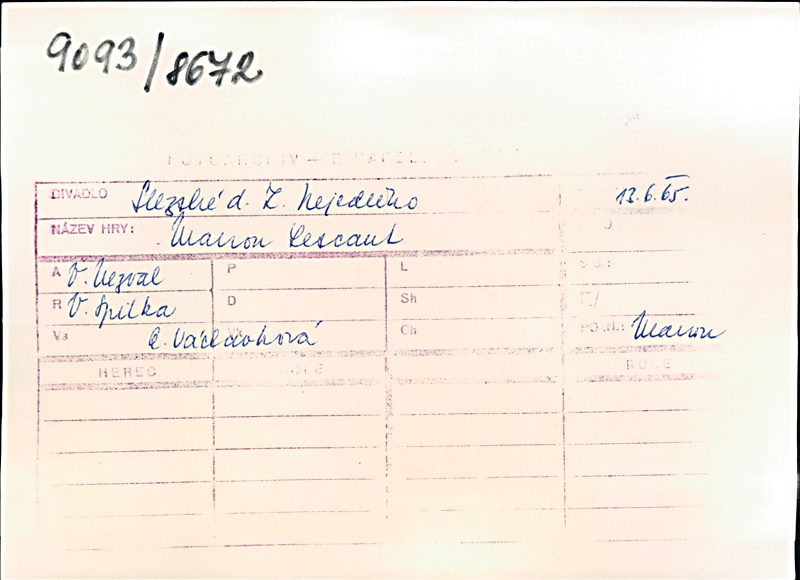 9093/8672
FOTOARCHIV —
DIVADLO Slezské d. Z. Nejedlého 13.6.65.
NÁZEV HRY: Manon Lescaut
A V. Nezval P L
R V. Špilka D Sh
Vs A. Václavková Ch POZN.: Manon
HEREC ROLE ROLE